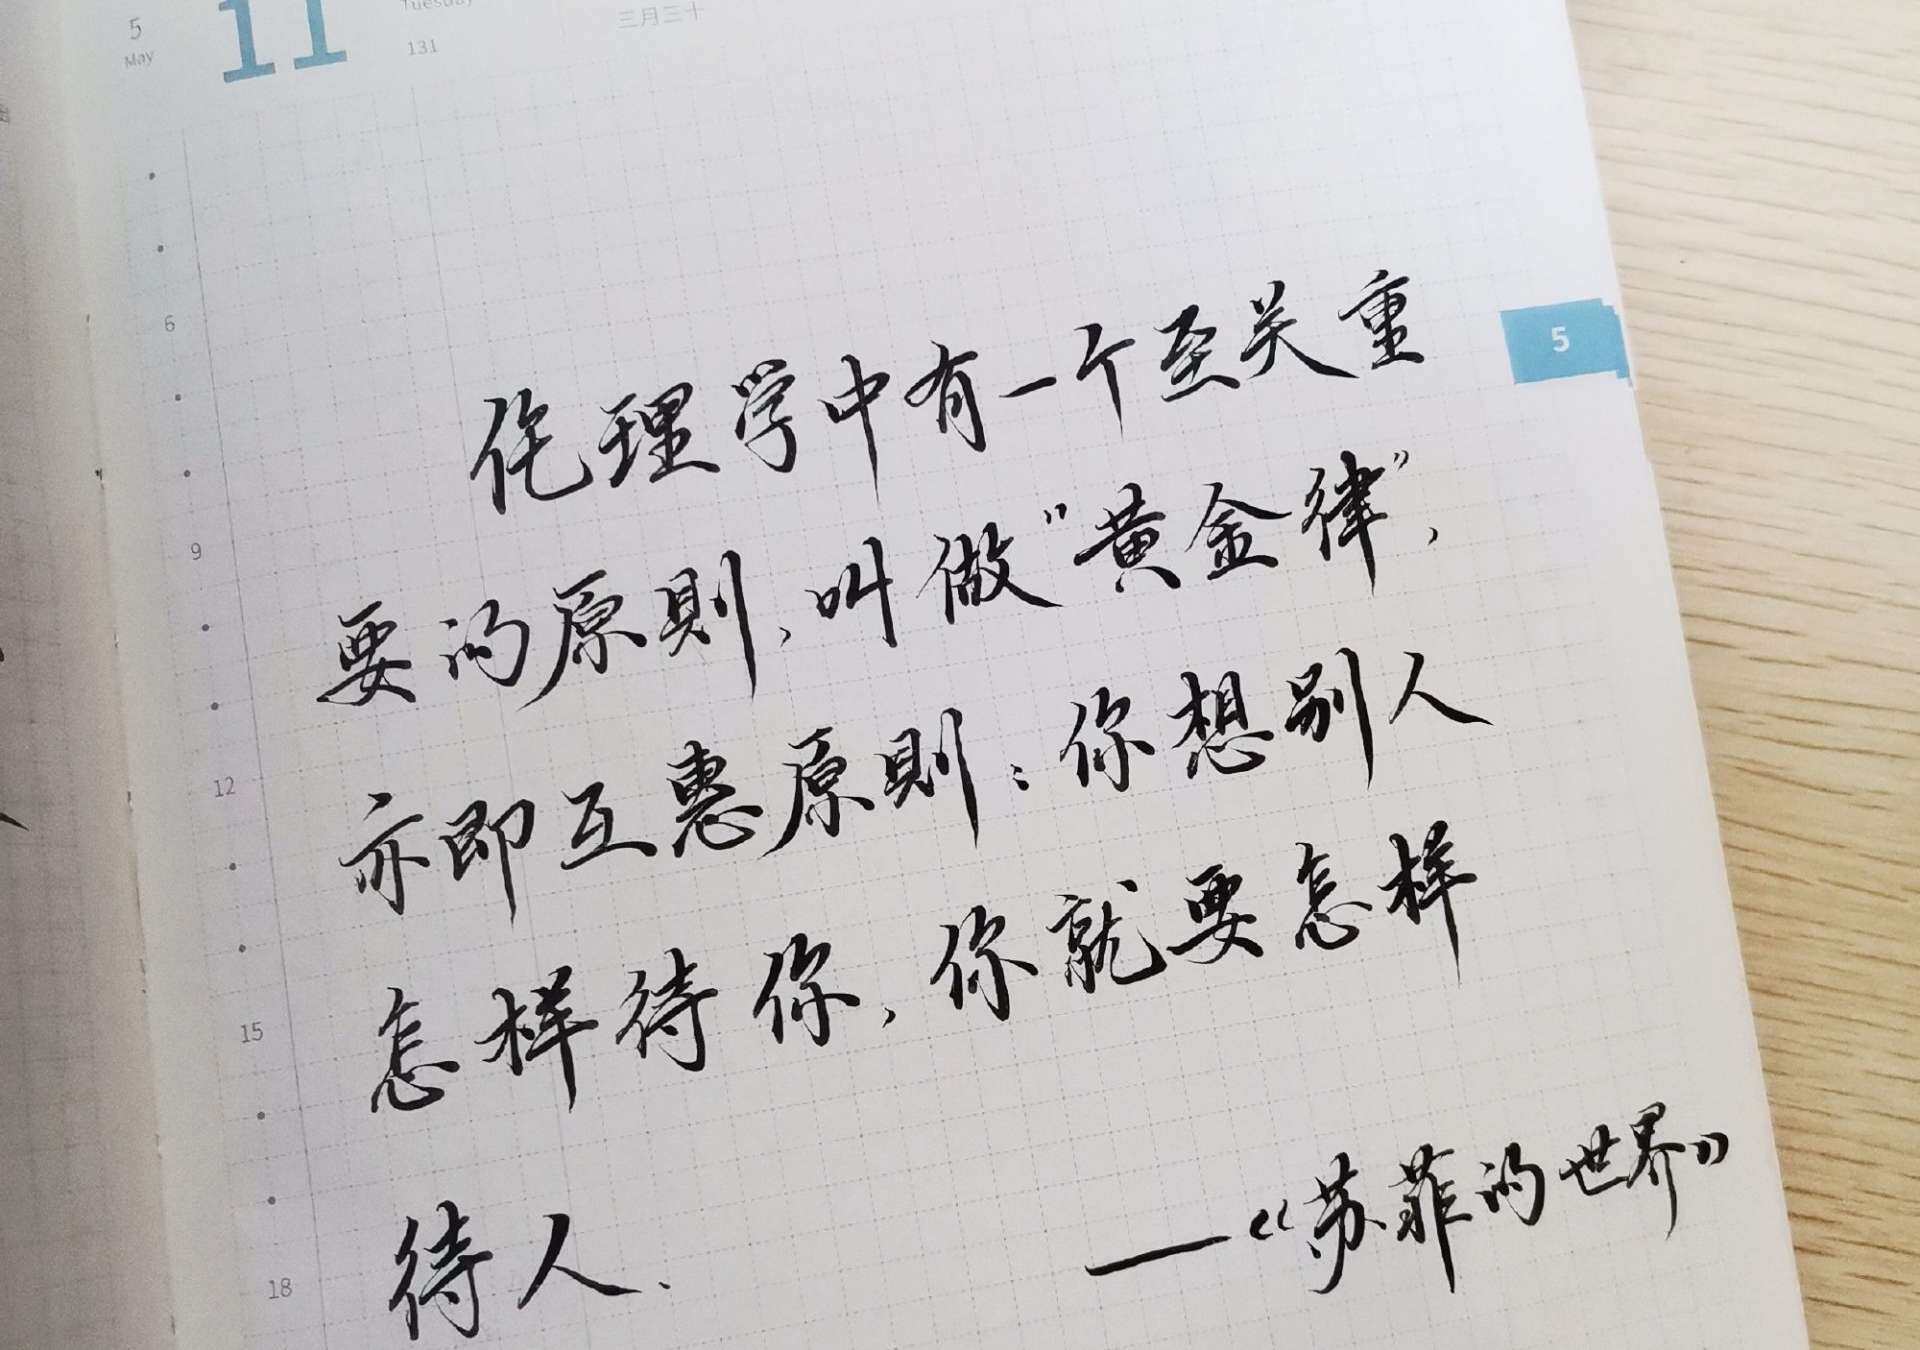 5
May
11
Tuesday
131
三月三十
5
6
伦理学中有一个至关重
9
要的原則,叫做"黄金律",
12
亦即互惠原則:你想别人
怎样待你,你就要怎样
15
待人.
18
——《苏菲的世界》